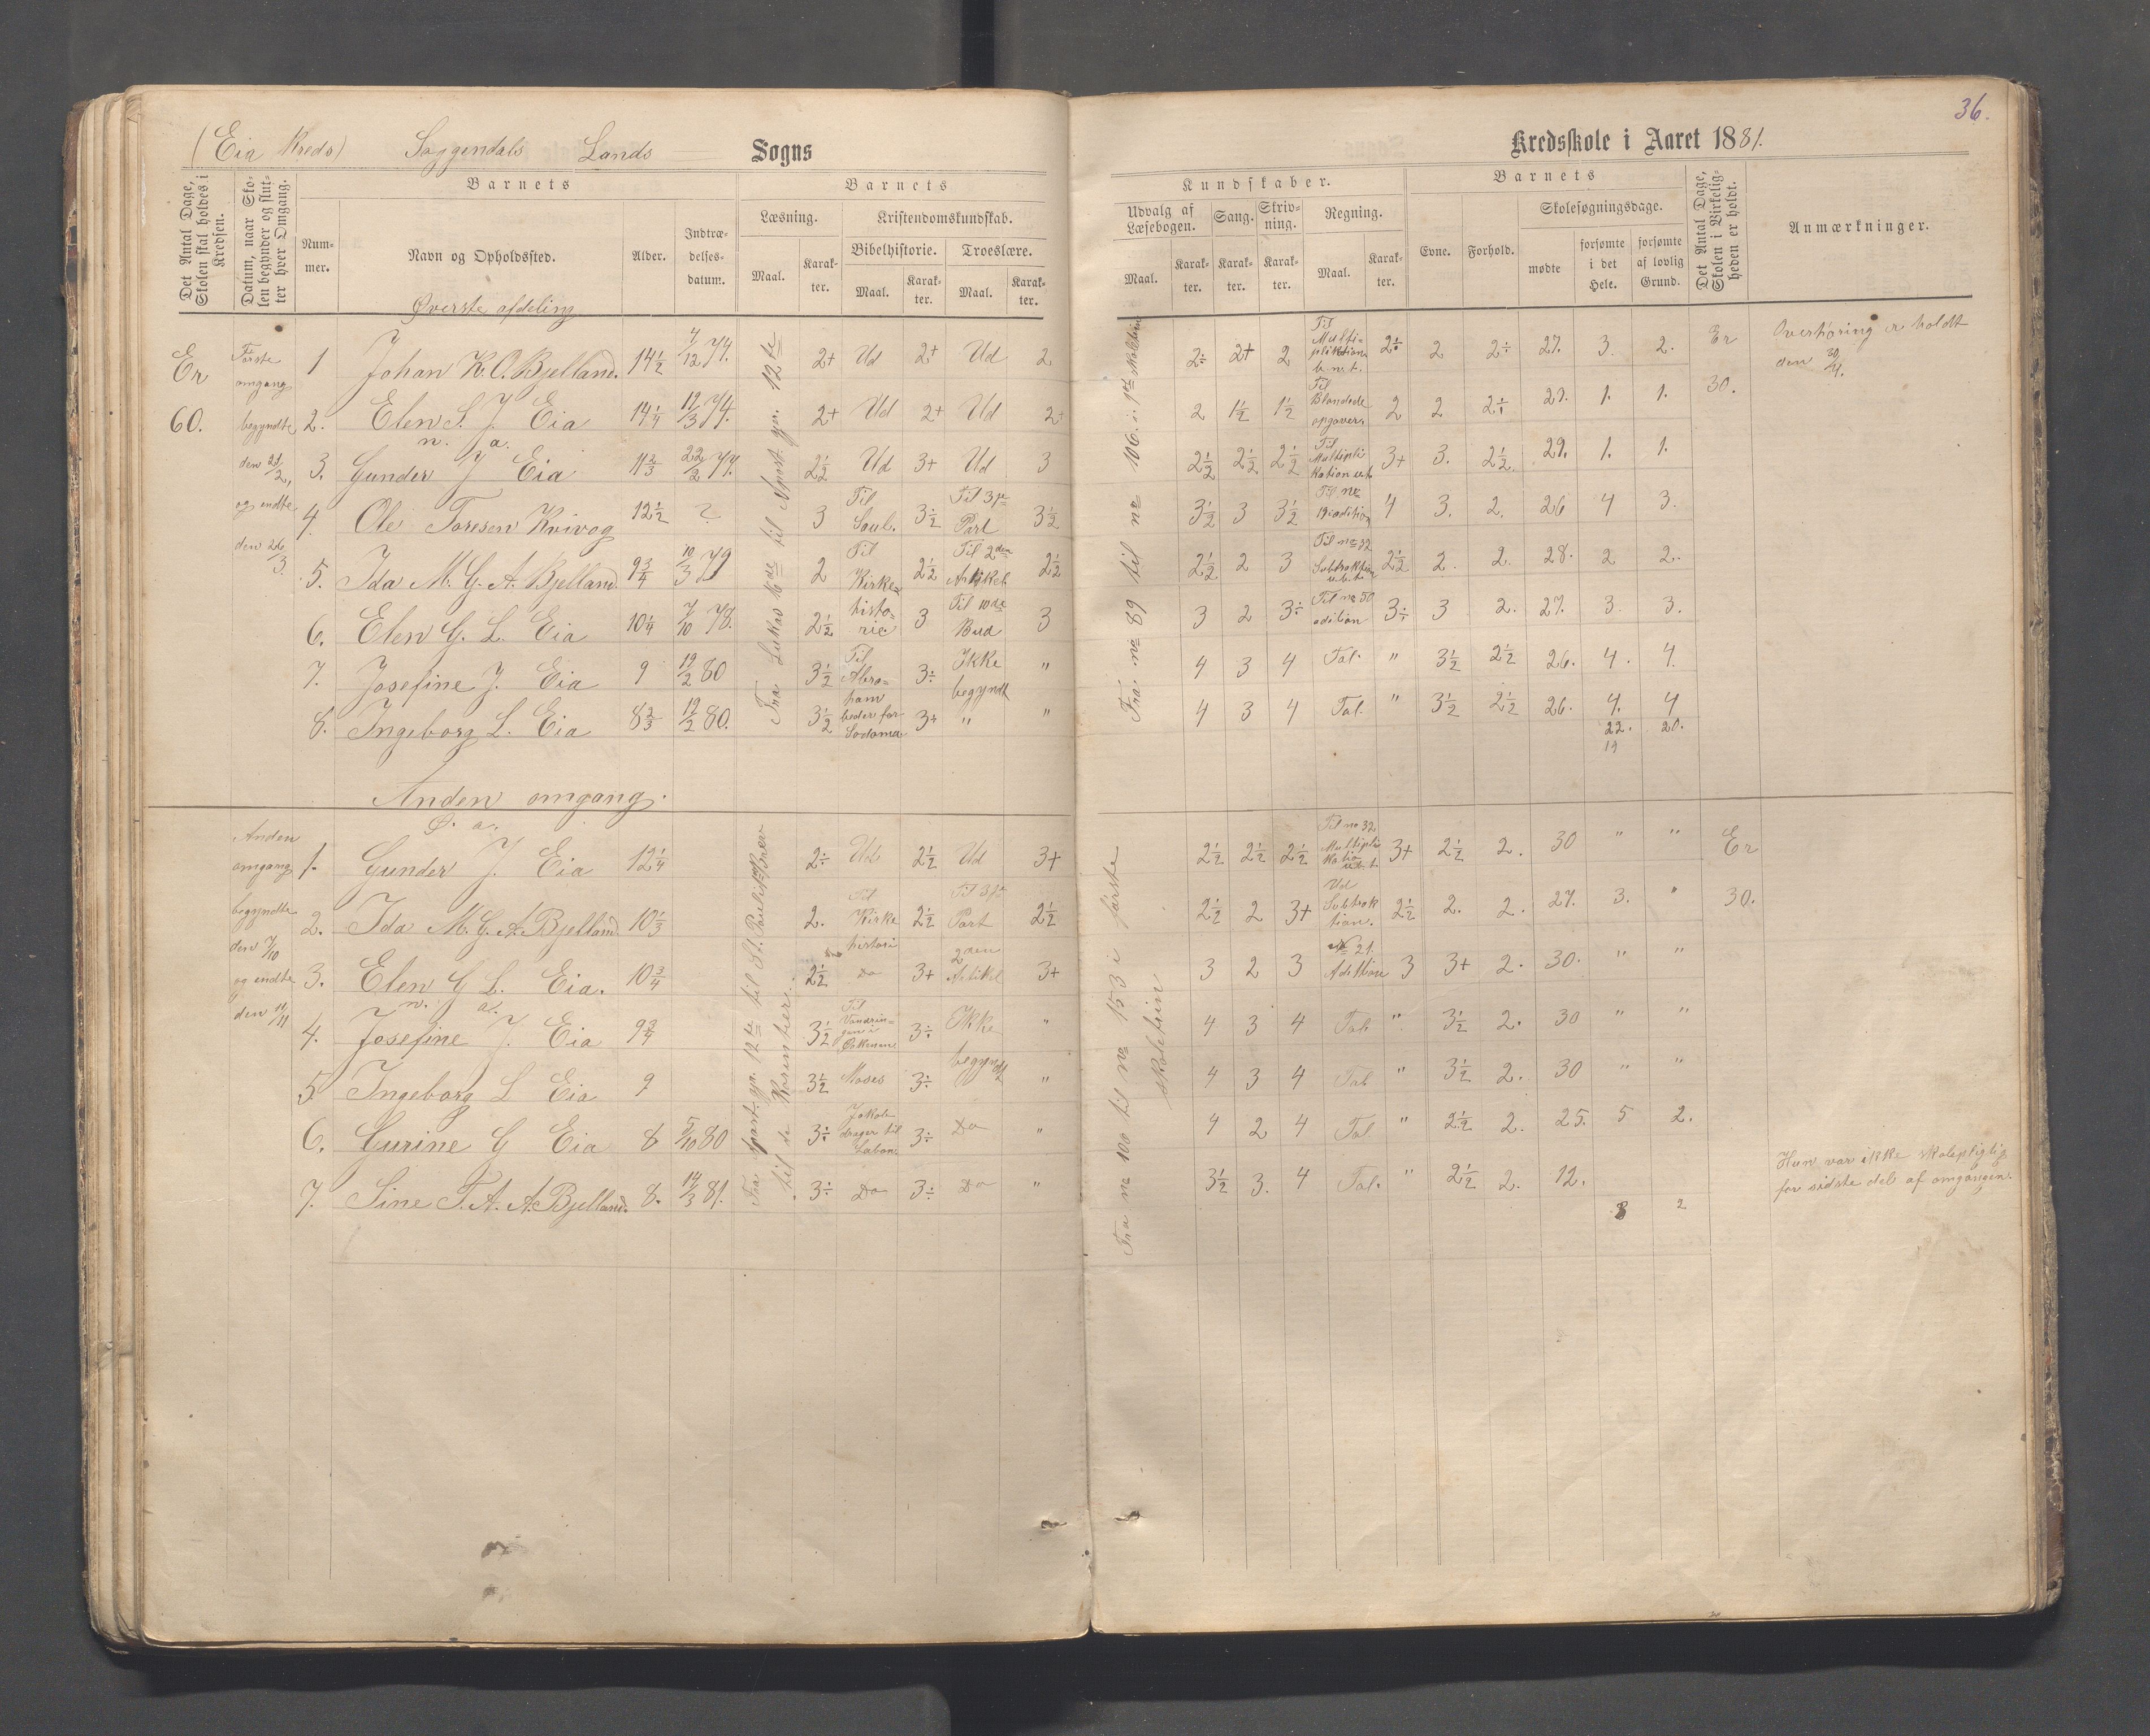 36.
(Eia Kreds) Soggendals Lands Sogns
Kredsskole i Aaret 1881.
Det Antal Dage, Skolen skal holdes i Kredsen.
Datum, naar Skolen begynder og slutter hver Omgang.
Barnets
Nummer.
Navn og Opholdssted.
Alder.
Indtrædelsesdatum.
Barnets
Læsning.
Maal.
Karakter.
Kristendomskundskab.
Bibelhistorie.
Maal.
Karakter.
Troeslære.
Maal.
Karakter.
Kundskaber.
Udvalg af Læsebogen.
Maal.
Karakter.
Sang.
Karakter.
Skrivning.
Karakter.
Regning.
Maal.
Karakter.
Barnets
Evne.
Forhold.
Skolesøgningsdage.
mødte
forsømte i det Hele.
forsømte af lovlig Grund.
Det Antal Dage, Skolen i Virkeligheden er holdt.
Anmærkninger.
Øverste afdeling
Er
60.
Første
omgang
begyndte
den 21/2,
og endte
den 26/3.
1 Johan K. O. Bjelland. 14 1/2 4/12 74. 2+ Ud 2+ Ud 2 2÷ 2+ 2 Til Multiplikation b. n. t. 2÷ 2 2÷ 27. 3. 2. Er
Overhøring er holdt
den 30/4.
2. Elen S. J. Eia 14 1/4 12/3 74. 2+ Ud 2+ Ud 2+ 2 1 1/2 1 1/2 Til Blandede opgaver. 2 2 2÷ 29. 1. 1. 30.
n. a.
3. Gunder J Eia 11 2/3 22/2 77. 2 1/2 Ud 3+ Ud 3 2 1/2 2 1/2 2 1/2 Til Multiplikation 3+ 3. 2 1/2. 29. 1. 1.
4. Ole Toresen Kvivog 12 1/2 ? 3 Til Saul. 3 1/2 Til 3die Part 3 1/2 3 1/2 3 3 1/2 Til no 19 adition 4 3. 2. 26 4 3.
5. Ida M. G. A. Bjelland 9 3/4 10/3 79 2 Til Kirkehistorie 2 1/2 Til 2den Artikel 2 1/2 2 1/2 2 3 Til no 32 Subtraktion 2 1/2 2. 2. 28. 2 2.
6. Elen G. L. Eia 10 1/4 7/10 78. 2 1/2 3 Til 10de Bud 3 3 2 3÷ Til no 50 adition 3÷ 3 2. 27. 3. 3.
7. Josefine J. Eia 9 19/2 80 3 1/2 Til Abraham beder for Sodoma 3÷ Ikke begyndt " 4 3 4 Tal. " 3 1/2 2 1/2 26. 4. 4.
8. Ingeborg L. Eia 8 2/3 19/2 80. 3 1/2 3+ " " 4 3 4 Tal. " 3 1/2 2 1/2 26. 4. 4
22. 20.
19
Fra Lukas 16de til Apost. gjn. 12te
Fra no 89 til no 106 i 1ste skoletrin
Anden omgang.
Ø. a.
Anden
omgang
begyndte
den 7/10
og endte
den 11/11
1. Gunder J. Eia 12 1/4 2÷ Ud 2 1/2 Ud 3+ 2 1/2 2 1/2 2 1/2 Til no 32 Multiplikation 3+ 2 1/2 2. 30 " " Er
2. Ida M. G. A. Bjelland. 10 1/3 2. Til Kirke histori 2 1/2 Til 3die Part 2 1/2 2 1/2 2 3+ Ud Subtraktion. 2 1/2 2. 2. 27. 3. " 30.
3. Elen G L. Eia. 10 3/4 2 1/2 Do 3+ 2den Artikel 3+ 3 2 3 No 21. Adition 3 3+ 2. 30. " "
n. a.
4. Josefine J. Eia 9 3/4 3 1/2 Til Vandringen i Ørkenen 3÷ Ikke begyndt " 4 3 4 Tal " 3 1/2 2. 30 " "
5 Ingeborg L Eia 9 3 1/2 Moses 3÷ " 4 3 4 Tal " 3 1/2 2. 30 " "
6. Gurine G Eia 8 5/10 80 3÷ Jakob drager til Laban 3÷ Do " 4 2 4 Tal " 2 1/2 2. 25. 5 2.
7. Sine T. A. A. Bjelland. 8. 14/3 81. 3÷ Do 3÷ Do " 3 1/2 3. 4 Tal. " 2 1/2 2. 12.
Hun var ikke skolepligtig
for sidste del af omgangen.
8 2
Fra Apost. gjn. 12te til St. Pauli Brev
til de Korintier.
Fra no 106 til no 153 i første
skoletrin